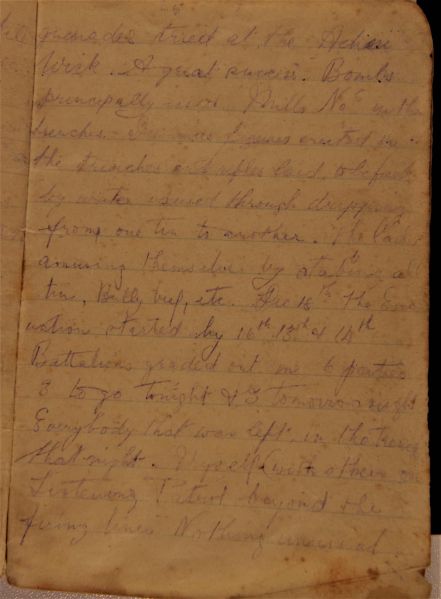 grenades tried at the Achi
Wrk. A great success. Bombs
principally used Mills No 5 in the
trenches. Dummies figures erected in
the trenches & rifles laid, to be fired
by water issued through dripping
from one tin to another. The lads
amusing themselves by stabbing all
tins, Bully beef, etc. Dec 18th The Evac
uation started by 16th 13th & 14th
Battalions graded out in 6 parties
3 to go tonight & 3 tomorrow night
Everybody that was left in the trenches
that night. Myself with others on
Listening Patrol beyond the
firing lines Nothing unusual